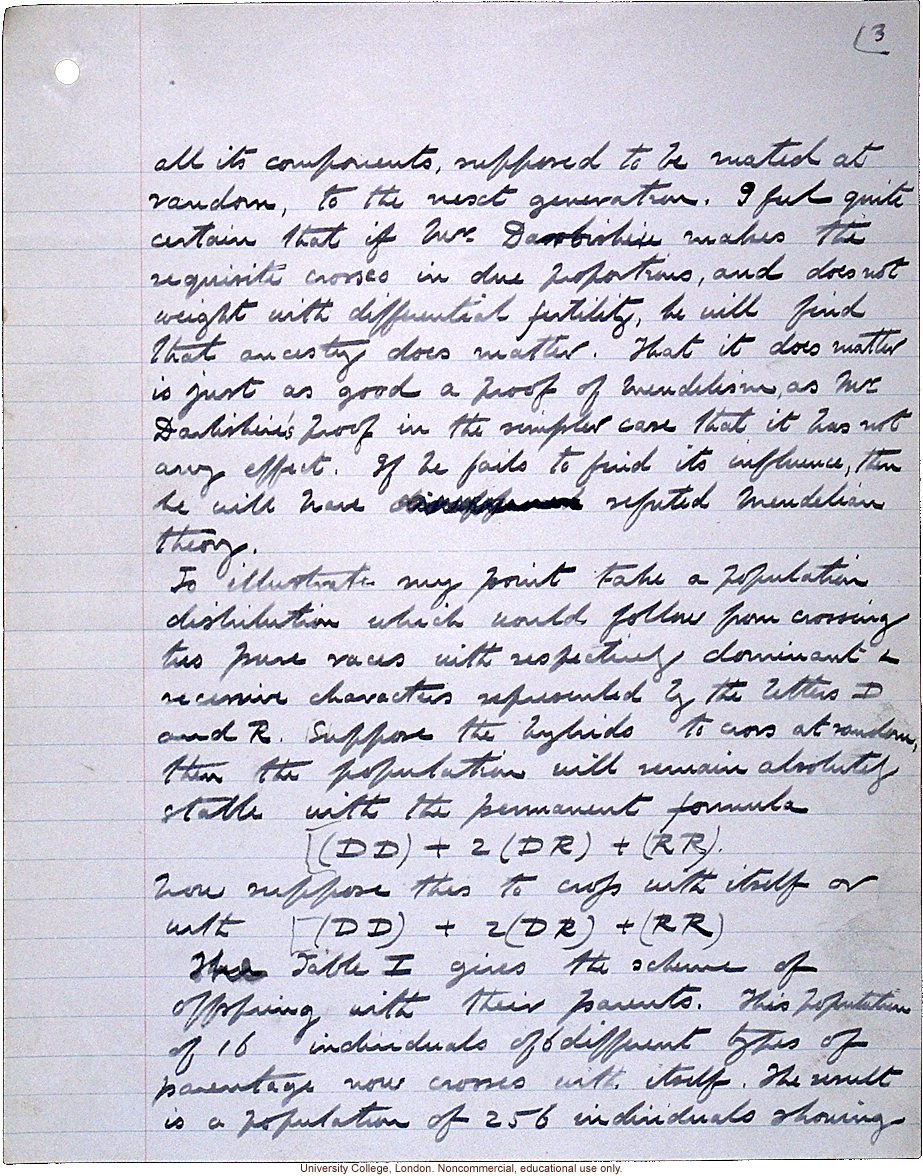 (3
all its components, supposed to be mated at
random, to the next generation. I feel quite
certain that if Mr Darbishire makes the
requisite crosses in due proportions, and does not
weight with differential fertility, he will find
that ancestry does matter. That it does matter
is just as good a proof of Mendelism, as Mr
Darbishire's proof in the simpler case that it has not
any effect. If he fails to find its influence, then
he will have refuted Mendelian
theory.
To illustrate my point take a population
distribution which would follow from crossing
two pure races with respectively dominant &
recessive characters represented by the letters D
and R. Suppose the hybrids to cross at random,
then the population will remain absolutely
stable with the permanent formula
[(DD) + 2(DR) + (RR).
Now suppose this to cross with itself or
with [(DD) + 2(DR) + (RR)
Table I gives the scheme of
offspring with their parents. This population
of 16 individuals of 6 different types of
parentage now crosses with itself. The result
is a population of 256 individuals showing
University College, London. Noncommercial, educational use only.